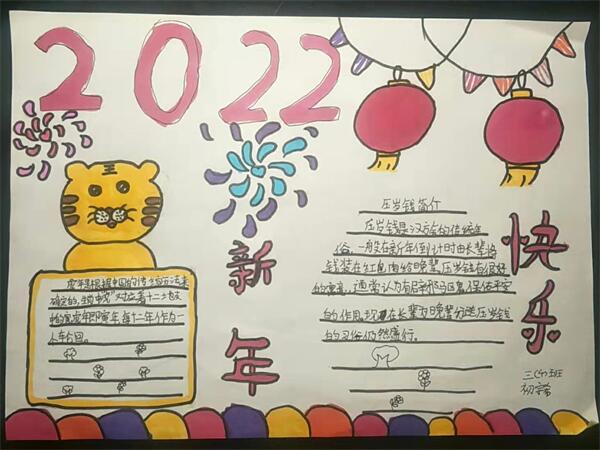 2022
新年
快乐
虎年是根据中国的传统方法来
确定的,生肖"虎"对应着十二地支
寅即寅年每十二年作为
压岁钱简介
压岁钱是汉族的传统年
俗,一般在新年倒计时由长辈将
钱装在红包内给晚辈,压岁钱有很好
的寓意,通常认为有辟邪驱鬼,保佑平安
的作用,现在长辈为晚辈分送压岁钱
的习俗仍然盛行。
三班